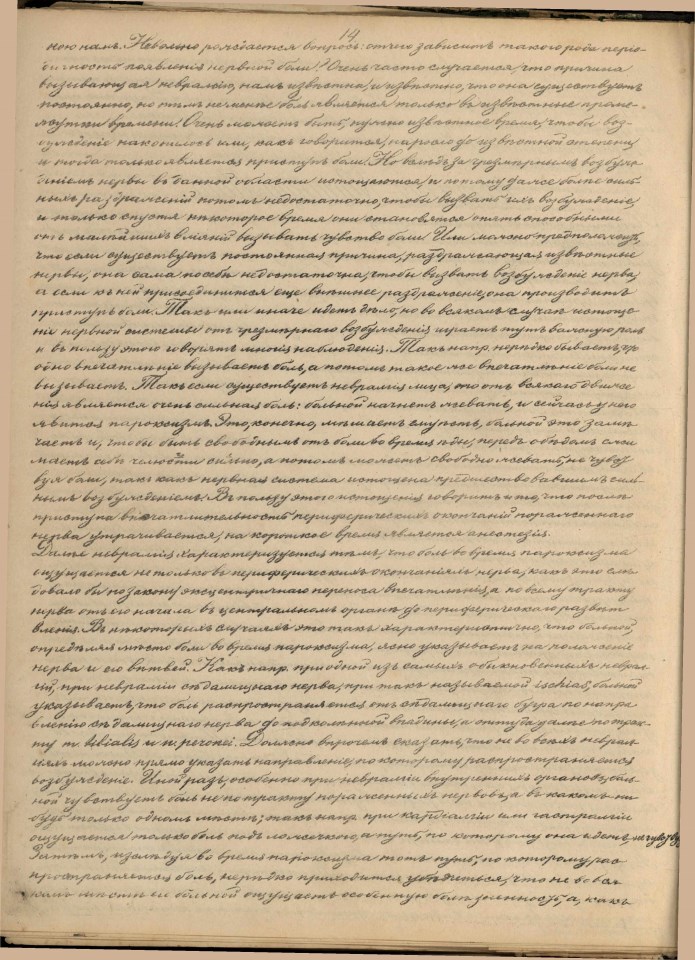 14
ною намъ. Невольно рождается вопросъ: отчего зависитъ такого рода періо-
дичность появленія нервной боли? Очень часто случается, что причина
вызывающая невралгію, намъ извѣстна, и извѣстно, что она существуетъ
постоянно, но тѣмъ не менѣе боль является только въ извѣстные проме-
жутки времени. Очень можетъ быть, нужно извѣстное время, чтобы воз-
бужденіе накопилось или, какъ говорится, наросло до извѣстной степени
и тогда только является приступъ боли. Но вслѣдъ за чрезмѣрнымъ возбуж-
деніемъ нервы въ данной области истощаются, и потому даже болѣе силь-
ныхъ раздраженій потомъ недостаточно, чтобы вызвать ихъ возбужденіе,
и только спустя нѣкоторое время они становятся опять способными
отъ малѣйшихъ вліяній вызывать чувство боли. Или можно предположить,
что если существуетъ постоянная причина, раздражающая извѣстные
нервы, она сама по себѣ недостаточна, чтобы вызвать возбужденіе нерва,
а если къ ней присоединится еще внѣшнее раздраженіе, она производитъ
приступъ боли. Такъ или иначе идетъ дѣло, но во всякомъ случаѣ истоще-
ніе нервной системы отъ чрезмѣрнаго возбужденія играетъ тутъ важную роль
и въ пользу этого говорятъ многія наблюденія. Такъ напр. нерѣдко бываетъ, что
одно впечатлѣніе вызываетъ боль, а потомъ такое же впечатлѣніе боли не
вызываетъ. Такъ если существуетъ невралгія лица, то отъ всякаго движе-
нія является очень сильная боль: больной начнетъ жевать, и сейчасъ у него
явится пароксизмъ. Это, конечно, мѣшаетъ ему ѣсть, больной это замѣ-
чаетъ и, чтобы быть свободнымъ отъ боли во время ѣды, передъ обѣдомъ сжи
маетъ себѣ челюсти сильно, а потомъ можетъ свободно жевать, не чувст
вуя боли, такъ какъ нервная система истощена предшествовавшимъ силь
нымъ возбужденіемъ. Въ пользу этого истощенія говоритъ и то, что послѣ
приступа впечатлительность периферическихъ окончаній пораженнаго
нерва утрачивается, на короткое время является анестезія.
Далѣе невралгія характеризуется тѣмъ, что боль во время пароксизма
ощущается не только въ периферическихъ окончаніяхъ нерва, какъ это слѣ
довало бы по закону эксцентричнаго переноса впечатлѣнія, а по всему тракту
нерва отъ его начала въ центральномъ органѣ до периферическаго развѣт
вленія. Въ нѣкоторыхъ случаяхъ это такъ характеристично, что больной,
опредѣляя мѣсто боли во время пароксизма, ясно указываетъ на положеніе
нерва и его вѣтвей. Какъ напр. при одной изъ самыхъ обыкновенныхъ неврал-
гій, при невралгіи сѣдалищнаго нерва, при такъ называемой ischias, больной
указываетъ, что боль распространяется отъ сѣдалищнаго бугра по напра
вленію сѣдалищнаго нерва до подколенной впадины, а оттуда далѣе по трак-
ту n. tibialis и n. peronei. Должно впрочемъ сказать, что не во всѣхъ неврал-
гіяхъ можно прямо указать направленіе, по которому распространяется
возбужденіе. Иной разъ, особенно при невралгіи внутреннихъ органовъ, боль-
ной чувствуетъ боль не по тракту пораженныхъ нервовъ, а въ какомъ ни
будь только одномъ мѣстѣ; такъ напр. при кардіалгіи или гастралгіи
ощущается только боль подъ ложечкой, а путь, по которому она идетъ, не чувству
Затѣмъ, изслѣдуя во время пароксизма тотъ путь, по которому рас
пространяется боль, нерѣдко приходится убѣдиться, что не во вся
комъ мѣстѣ его больной ощущаетъ особенную болѣзненность, а, какъ